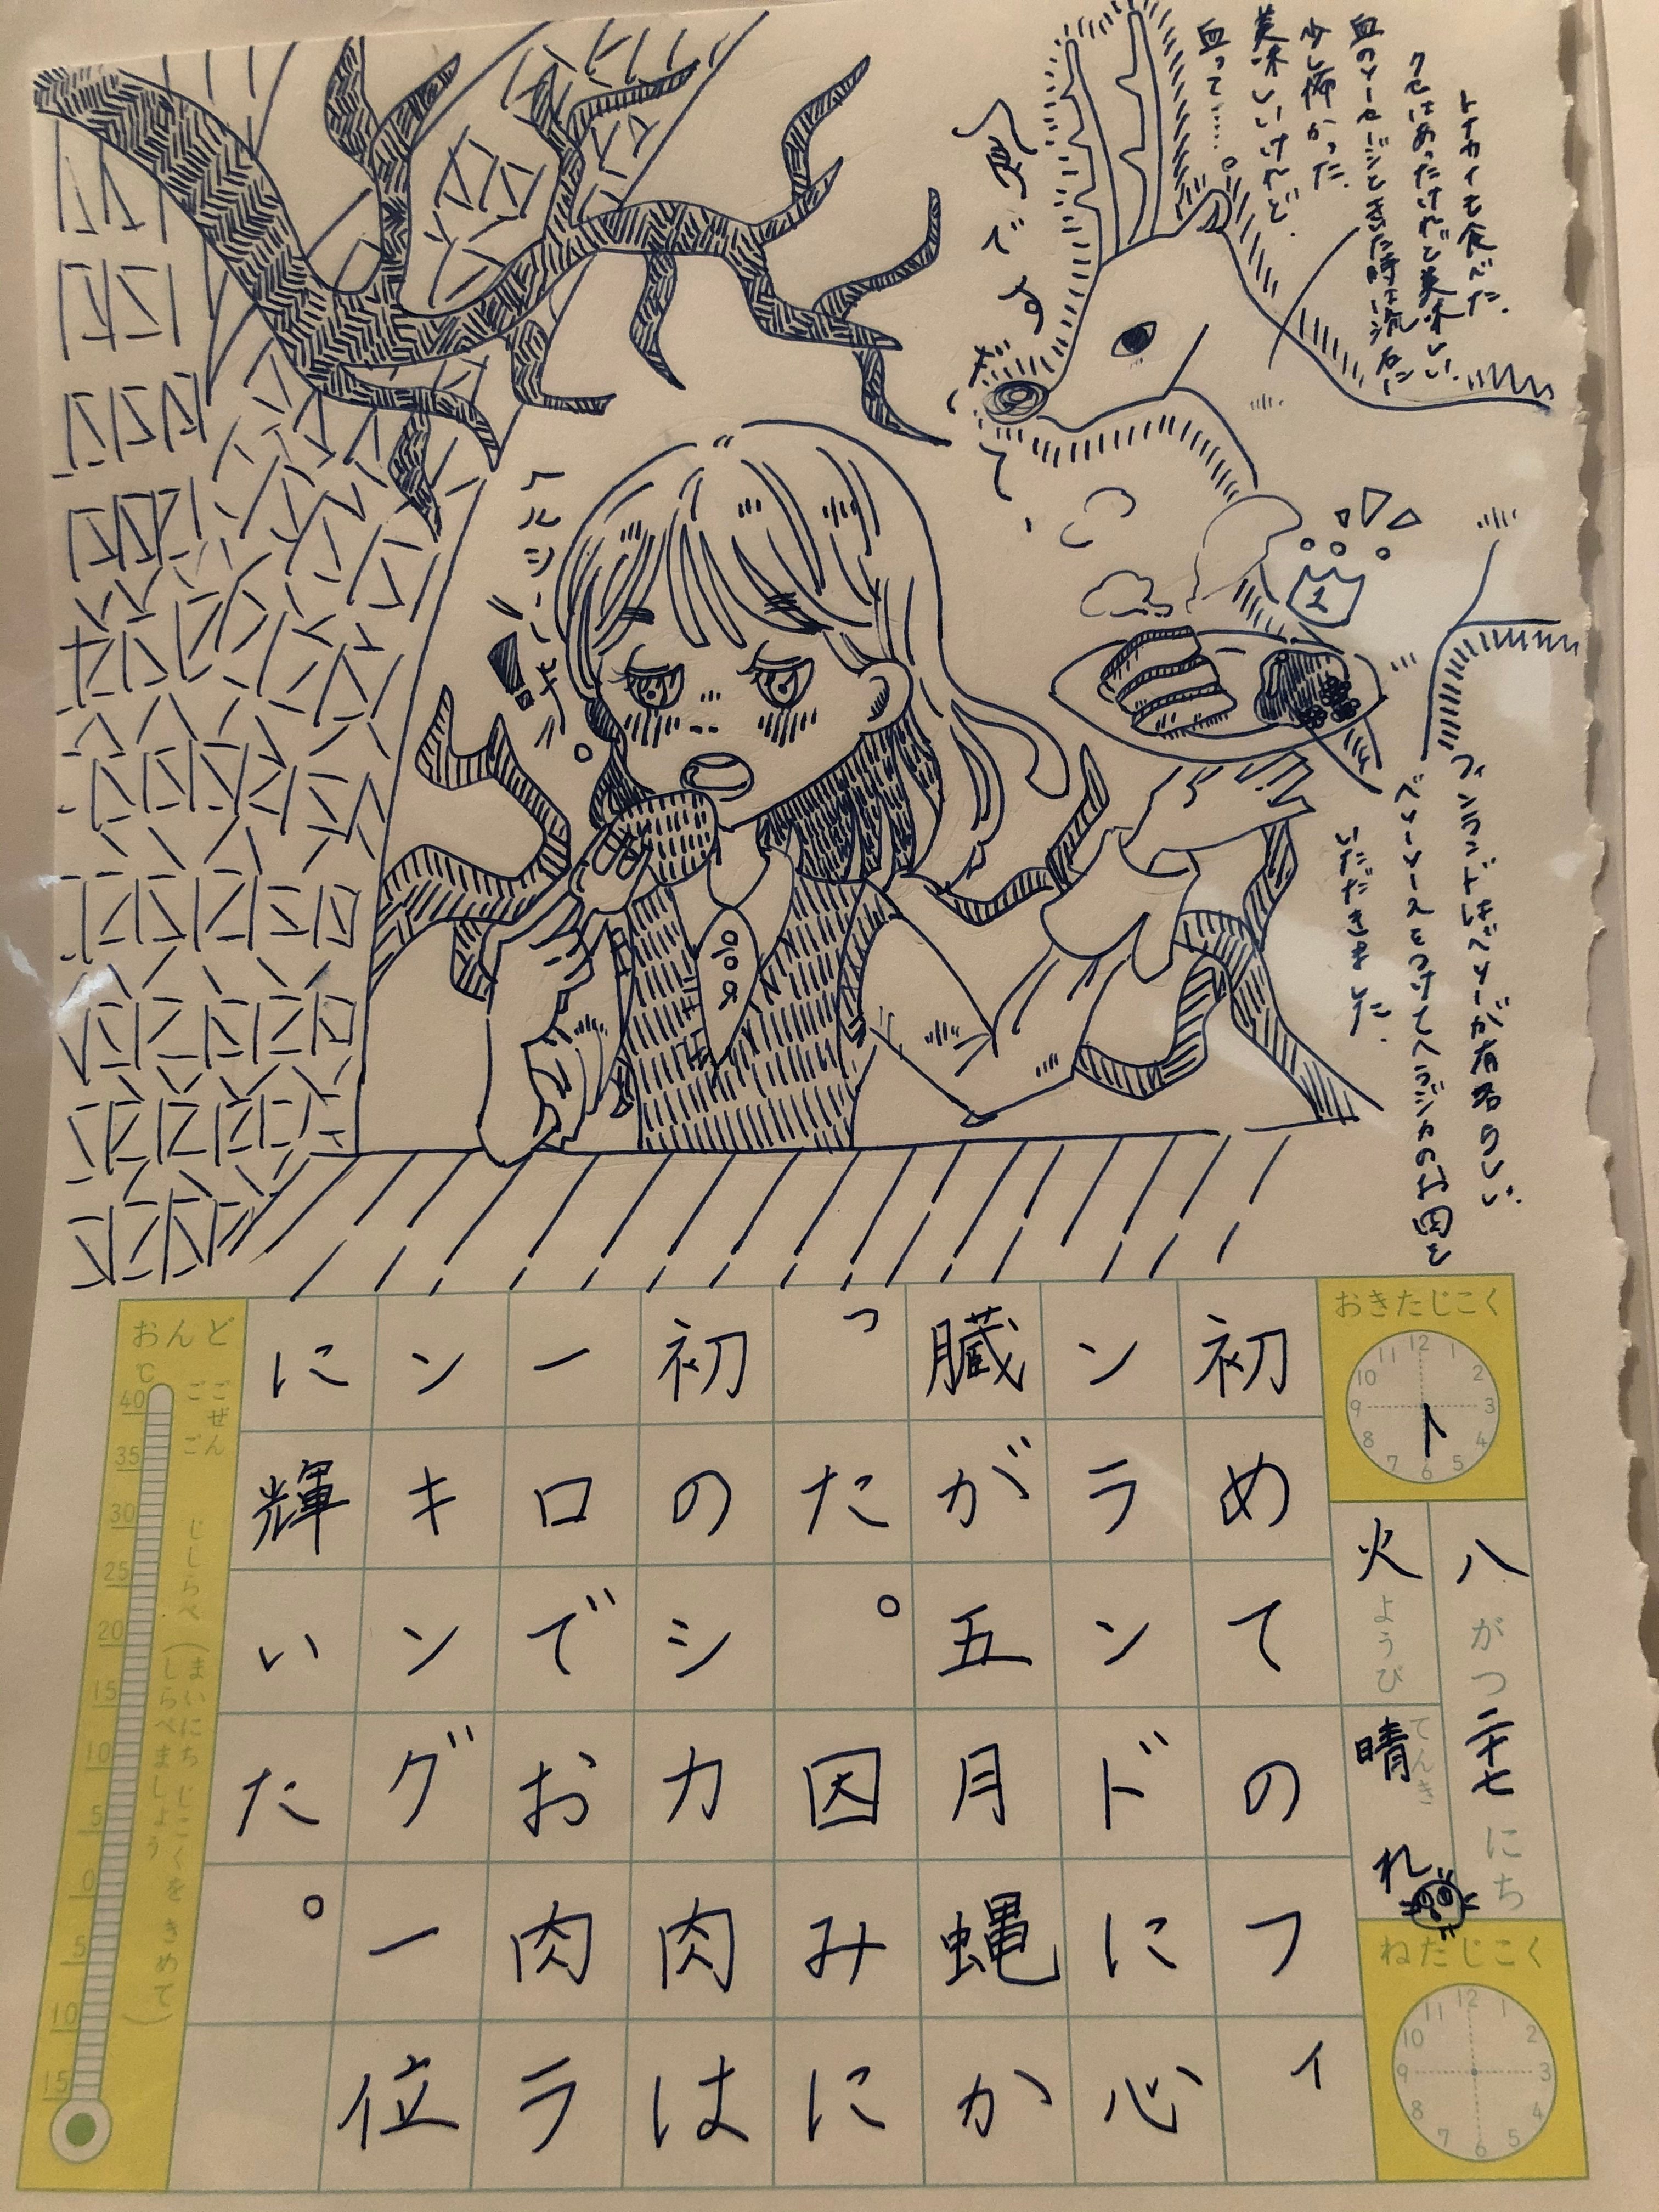 トナカイも食べた。
クセはあったけれど美味しい。
血のソーセージときいた時は流石に
少し怖かった。
美味しいけれど。
血って……。
ヘラ
です
ヘルシンキ
1
フィンランドはベリーが有名らしい。
ベリーソースをつけてヘラジカのお肉を
いただきました。
おきたじこく
12 1 2 3 4 5 6 7 8 9 10 11
八がつ二十七にち
火ようび
てんき
晴れ
ねたじこく
12 1 2 3 4 5 6 7 8 9 10 11
初めてのフィ
ンランドに心
臓が五月蝿か
った。因みに
初のシカ肉は
一口でお肉ラ
ンキング一位
に輝いた。
おんど
℃
ごぜん
ごご
じしらべ
(まいにち じこくを きめて
しらべましょう)
40
35
30
25
20
15
10
5
0
5
10
15